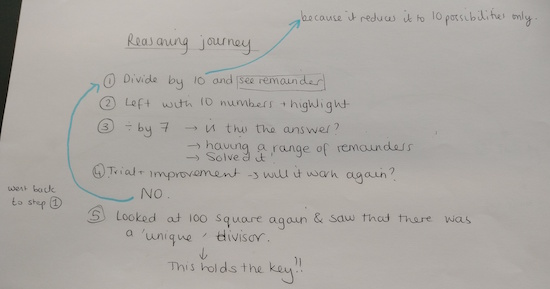 because it reduces it to 10 possibilities only.
Reasoning journey
① Divide by 10 and see remainder
② Left with 10 numbers + highlight
③ ÷ by 7 → is this the answer?
→ having a range of remainders
→ Solved it!
④ Trial + improvement → will it work again?
NO.
went back
to step ①
⑤ Looked at 100 square again & saw that there was
a 'unique' divisor.
↓
This holds the key!!